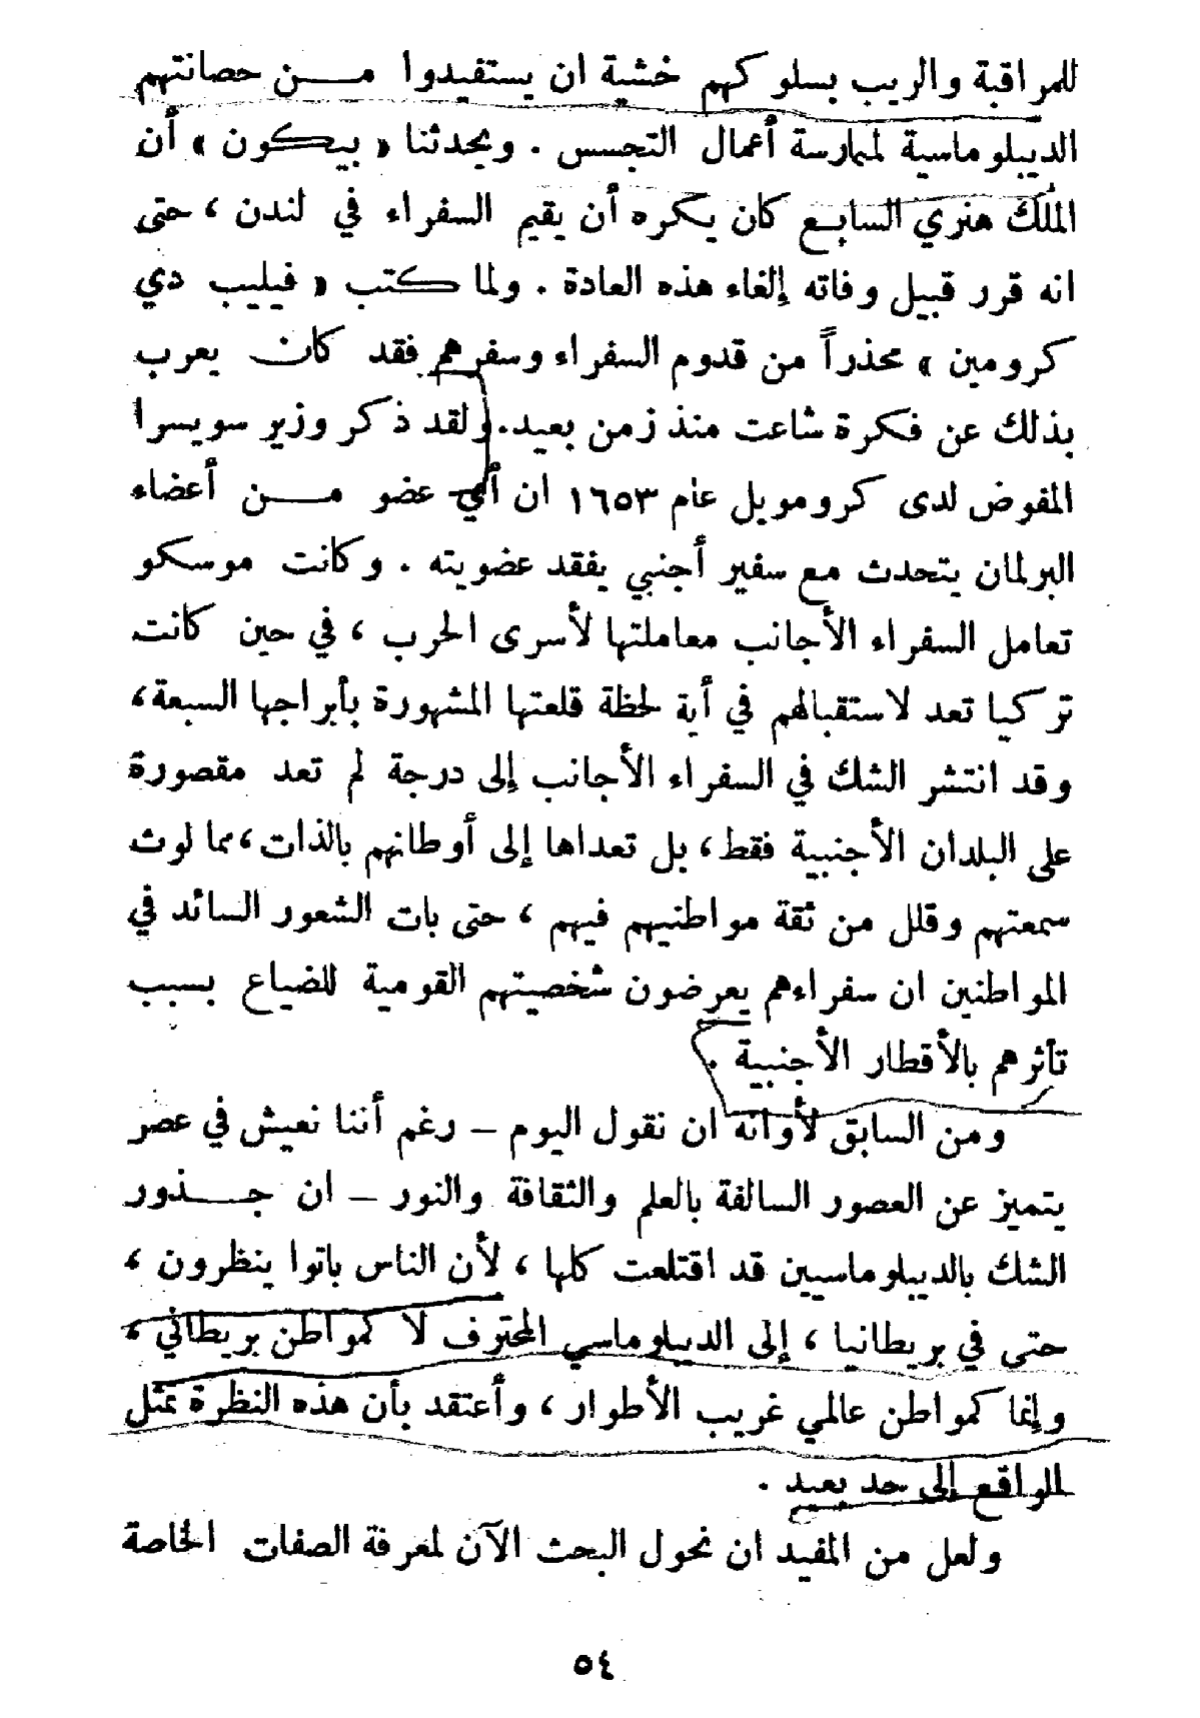 للمراقبة والريب بسلوكهم خشية ان يستفيدوا مـــن حصانتهم
الديبلوماسية لممارسة أعمال التجسس . ويحدثنا « بيكون » أن
الملك هنري السابع كان يكره أن يقيم السفراء في لندن ، حتى
انه قرر قبيل وفاته إلغاء هذه العادة . ولما كتب « فيليب دي
كرومين » محذراً من قدوم السفراء وسفرهم فقد كان يعرب
بذلك عن فكرة شاعت منذ زمن بعيد. ولقد ذكر وزير سويسرا
المفوض لدى كرومويل عام ١٦٥٣ ان أي عضو مـــن أعضاء
البرلمان يتحدث مع سفير أجنبي يفقد عضويته . وكانت موسكو
تعامل السفراء الأجانب معاملتها لأسرى الحرب ، في حين كانت
تركيا تعد لاستقبالهم في أية لحظة قلعتها المشهورة بأبراجها السبعة،
وقد انتشر الشك في السفراء الأجانب إلى درجة لم تعد مقصورة
على البلدان الأجنبية فقط، بل تعداها إلى أوطانهم بالذات، مما لوث
سمعتهم وقلل من ثقة مواطنيهم فيهم ، حتى بات الشعور السائد في
المواطنين ان سفراءهم يعرضون شخصيتهم القومية للضياع بسبب
تأثرهم بالأقطار الأجنبية .
ومن السابق لأوانه ان نقول اليوم – رغم أننا نعيش في عصر
يتميز عن العصور السالفة بالعلم والثقافة والنور – ان جـــذور
الشك بالديبلوماسيين قد اقتلعت كلها ، لأن الناس باتوا ينظرون ،
حتى في بريطانيا ، إلى الديبلوماسي المحترف لا كمواطن بريطاني ،
وإنما كمواطن عالمي غريب الأطوار ، وأعتقد بأن هذه النظرة تمثل
الواقع إلى حد بعيد .
ولعل من المفيد ان نحول البحث الآن لمعرفة الصفات الخاصة
٥٤